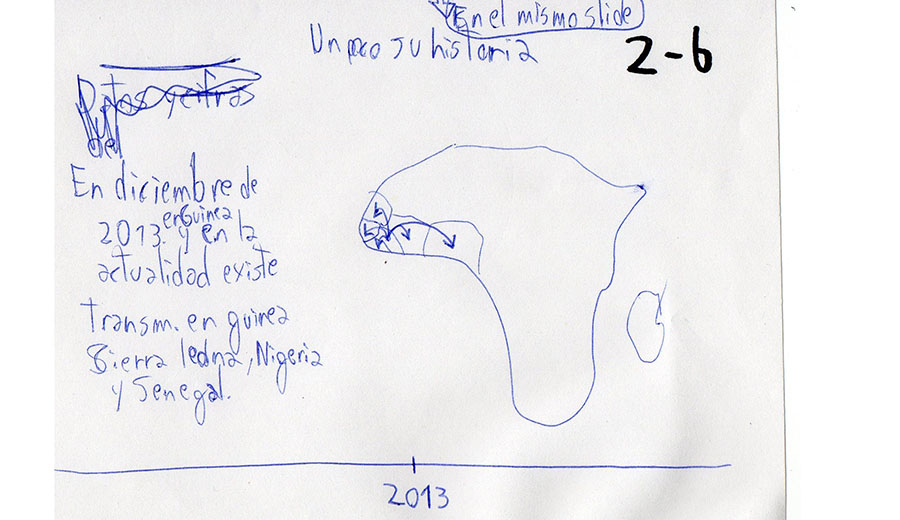 En el mismo slide
Un poco su historia
2-6
En diciembre de
2013. en Guinea y en la
actualidad existe
Transm. en guinea
Sierra leona, Nigeria
y Senegal.
2013